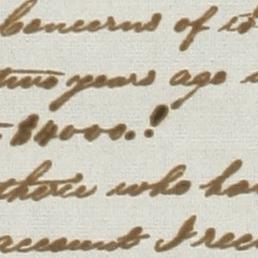 Concerns of
two years ago
$4000.!
those who ha
account I rec